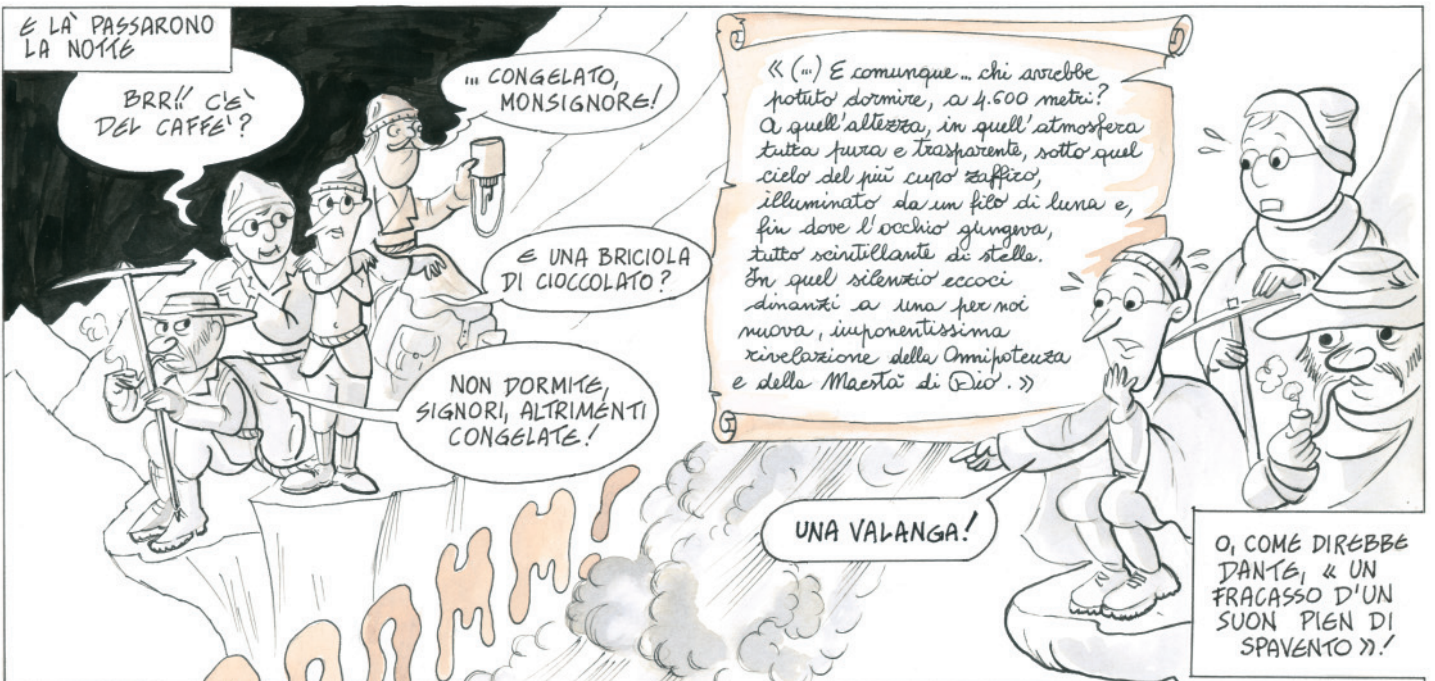 E LÀ PASSARONO
LA NOTTE
BRR!! C'E'
DEL CAFFE'?
... CONGELATO,
MONSIGNORE!
E UNA BRICIOLA
DI CIOCCOLATO?
NON DORMITE,
SIGNORI, ALTRIMENTI
CONGELATE!
« (...) E comunque... chi avrebbe
potuto dormire, a 4.600 metri?
A quell'altezza, in quell'atmosfera
tutta pura e trasparente, sotto quel
cielo del più cupo zaffiro,
illuminato da un filo di luna e,
fin dove l'occhio giungeva,
tutto scintillante di stelle.
In quel silenzio eccoci
dinanzi a una per noi
nuova, imponentissima
rivelazione della Omnipotenza
e della Maestà di Dio. »
OOMM!
UNA VALANGA!
O, COME DIREBBE
DANTE, « UN
FRACASSO D'UN
SUON PIEN DI
SPAVENTO »!